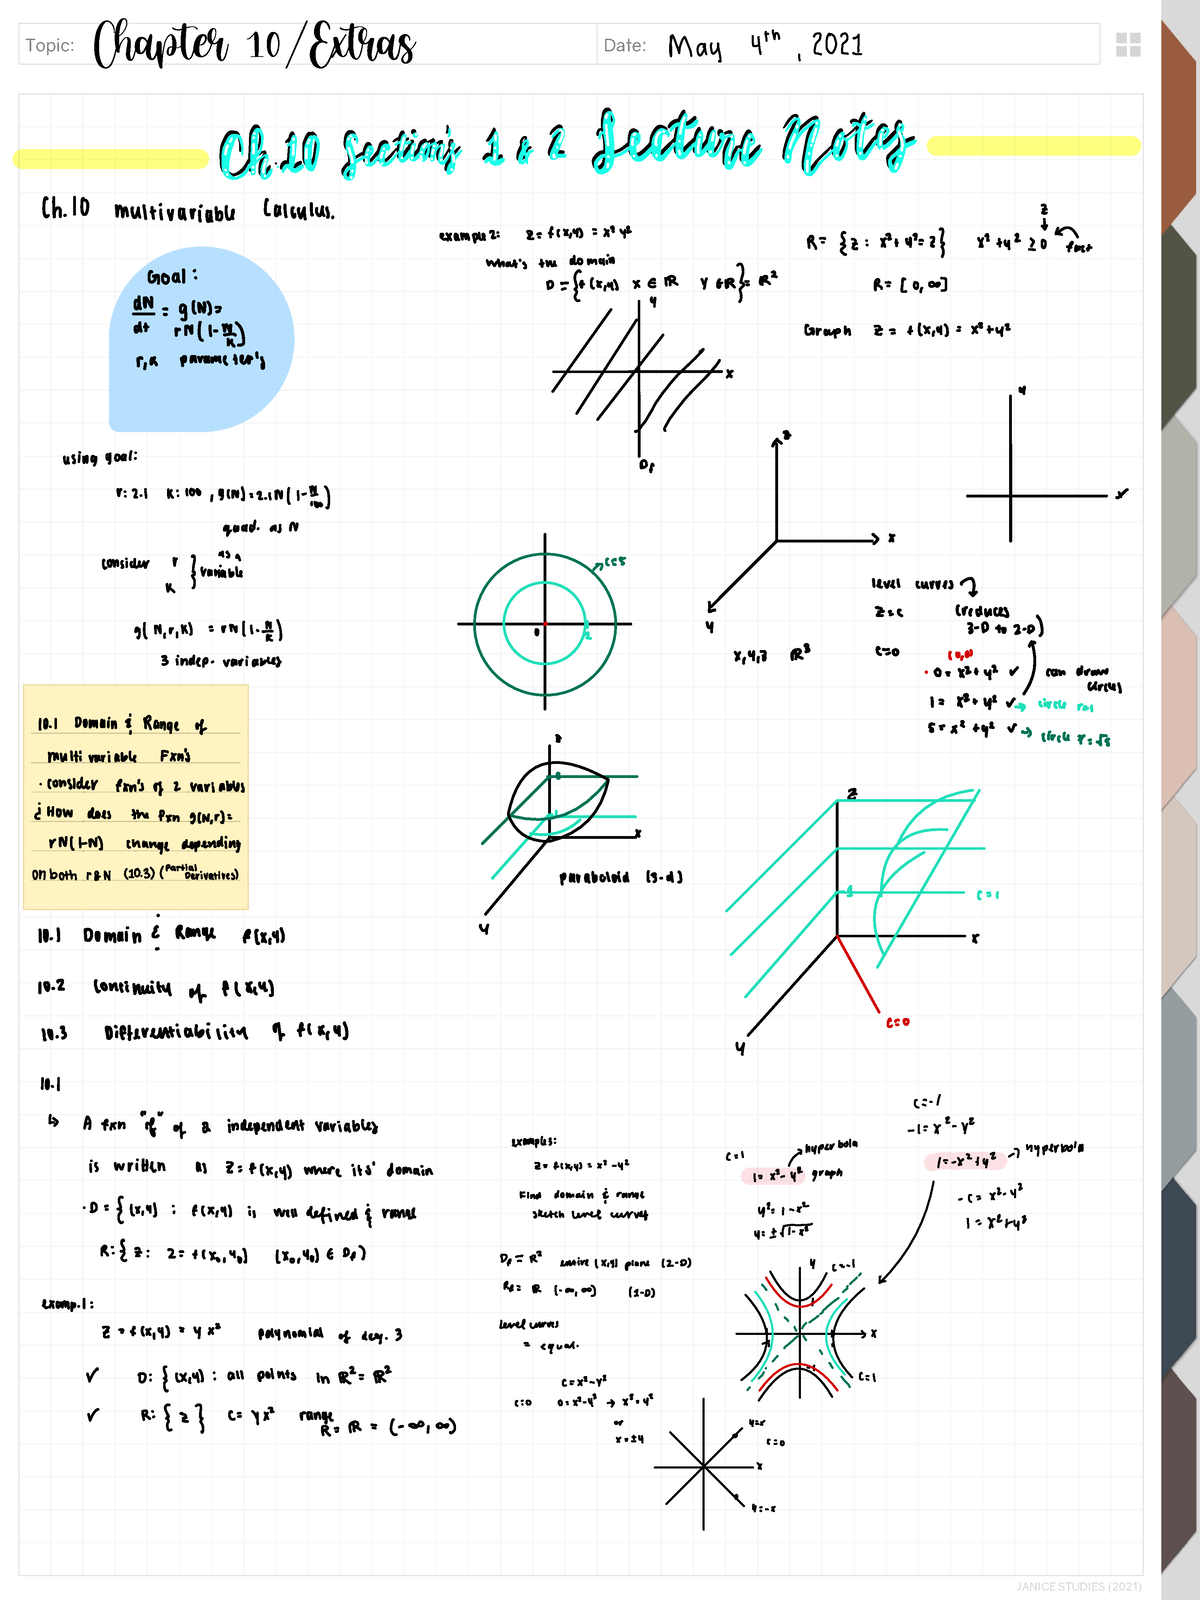 Topic: Chapter 10/Extras
Date: May 4th, 2021
Ch.10 Section's 1 & 2 Lecture Notes
Ch.10 multivariable Calculus.
Goal:
dN/dt = g(N)=
rN(1-N/K)
r,K parameter's
using goal:
r: 2.1 K: 100 , g(N)=2.1N(1-N/100)
quad. as N
consider r K } as a variable
g(N,r,K) = rN(1-N/K)
3 indep. variables
10.1 Domain & Range of
multi variable Fxn's
· consider fxn's of 2 variables
¿ How does the fxn g(N,r)=
rN(1-N) change depending
on both r & N (10.3) (Partial Derivatives)
10.1 Domain & Range f(x,y)
10.2 Continuity of f(x,y)
10.3 Differentiability of f(x,y)
10.1
↳ A fxn "f" of 2 independent variables
is written as z=f(x,y) where its' domain
·D={(x,y) : f(x,y) is well defined & range
R:{z: z=f(x₀,y₀) (x₀,y₀) ∈ Df)
examp.1:
z=f(x,y) = yx² polynomial of deg. 3
✓ D: {(x,y) : all points in ℝ²=ℝ²
✓ R: {z} c= yx² range
R= ℝ = (-∞,∞)
example 2: z= f(x,y) = x² y²
What's the domain
D={f(x,y) x ∈ ℝ y ∈ ℝ}= ℝ²
y
x
Df
c=5
0
2
z
x
y
paraboloid (3-d)
R= {z: x²+y²=z} x²+y² ≥0
z
fact
R= [0,∞]
Graph z= f(x,y) = x²+y²
y
x
z
x
y
x,y,z ℝ³
level curves
z=c (reduces
3-D to 2-D)
c=0 (0,0)
· 0= x²+y² ✓ can draw
circles
1= x²+y² ✓→ circle r=1
5= x²+y² ✓→ circle r=√5
z
1
c=1
x
c=0
y
example3:
z= f(x,y) = x²-y²
Find domain & range
sketch level curves
Df= ℝ² entire (x,y) plane (2-D)
Rf= ℝ (-∞,∞) (1-D)
level curves
= equal.
c=x²-y²
c=0 0=x²-y² → x²=y²
or
x=±y
c=1
hyperbola
1=x²-y² graph
y²=1-x²
y=±√1-x²
c=-1
-1=x²-y²
1=-x²+y² → hyperbola
-c=x²-y²
1=x²+y²
y c=-1
x
c=1
y=x
c=0
x
y=-x
JANICE STUDIES (2021)